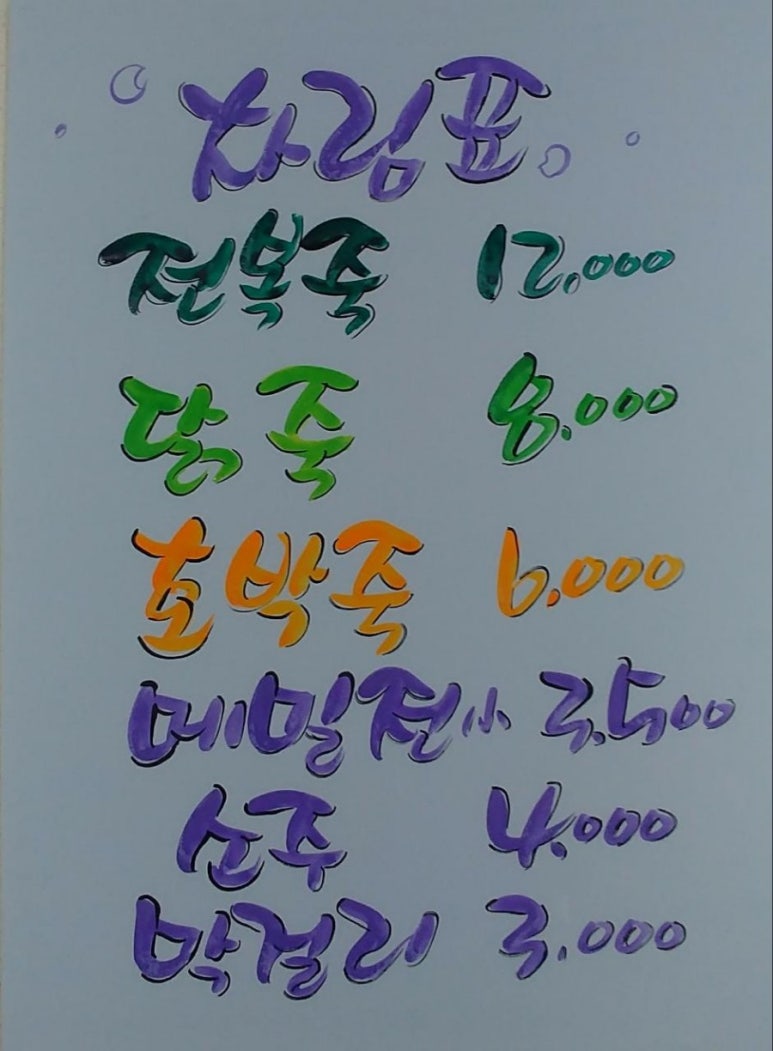 차림표
전복죽 12.000
닭죽 8.000
호박죽 6.000
메밀전 小 3.500
소주 4.000
막걸리 3.000